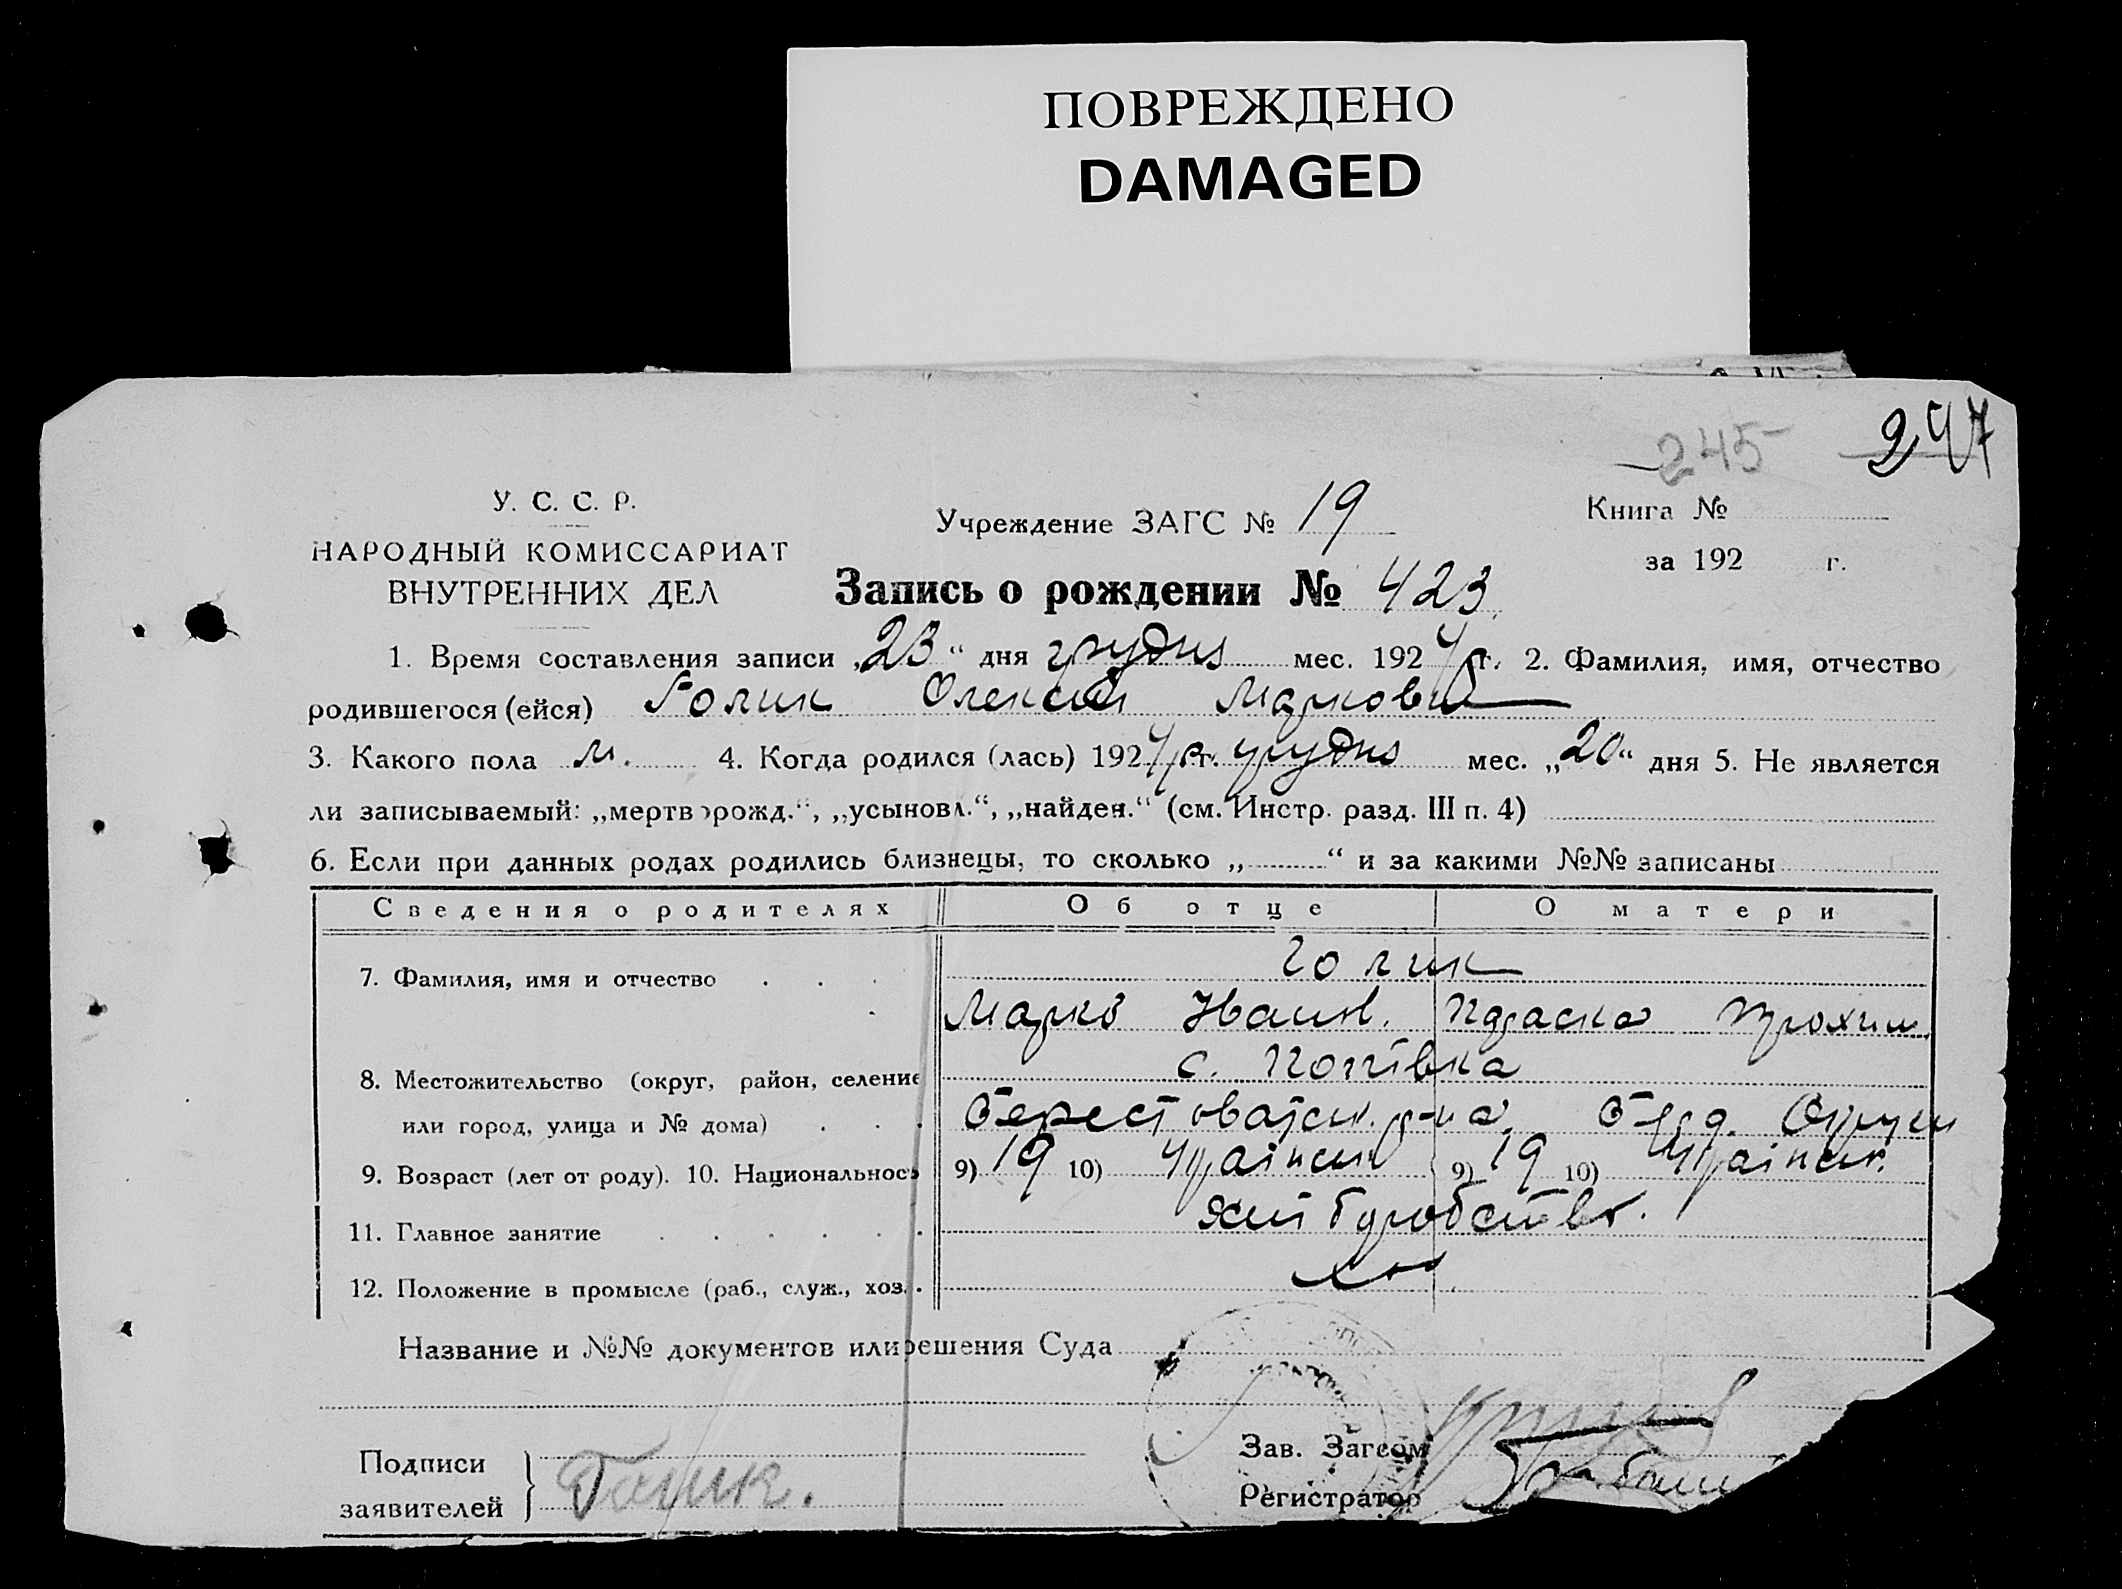 ПОВРЕЖДЕНО
DAMAGED
245 247
У. С. С. Р.
НАРОДНЫЙ КОМИССАРИАТ
ВНУТРЕННИХ ДЕЛ
Учреждение ЗАГС № 19
Книга №
за 192 г.
Запись о рождении № 423
1. Время составления записи „23“ дня грудня мес. 1924 г. 2. Фамилия, имя, отчество
родившегося (ейся) Голик Олексій Маркович
3. Какого пола м. 4. Когда родился (лась) 1924 г. грудня мес. „20“ дня 5. Не является
ли записываемый: „мертворожд.“, „усыновл.“, „найден.“ (см. Инстр. разд. III п. 4)
6. Если при данных родах родились близнецы, то сколько „ “ и за какими №№ записаны
Сведения о родителях Об отце О матери
7. Фамилия, имя и отчество . . . Голик
Марко Иванов. Параска Трохим.
8. Местожительство (округ, район, селение с. Попівка
или город, улица и № дома) . . . Берестоватськ. р-на, Берд. Округи
9. Возраст (лет от роду). 10. Национальнос 9) 19 10) Україн 9) 19 10) Українк.
11. Главное занятие . . . . . . хліборобство.
12. Положение в промысле (раб., служ., хоз. .
Название и №№ документов или решения Суда
Подписи
заявителей
Голик.
Зав. Загсом
Регистратор